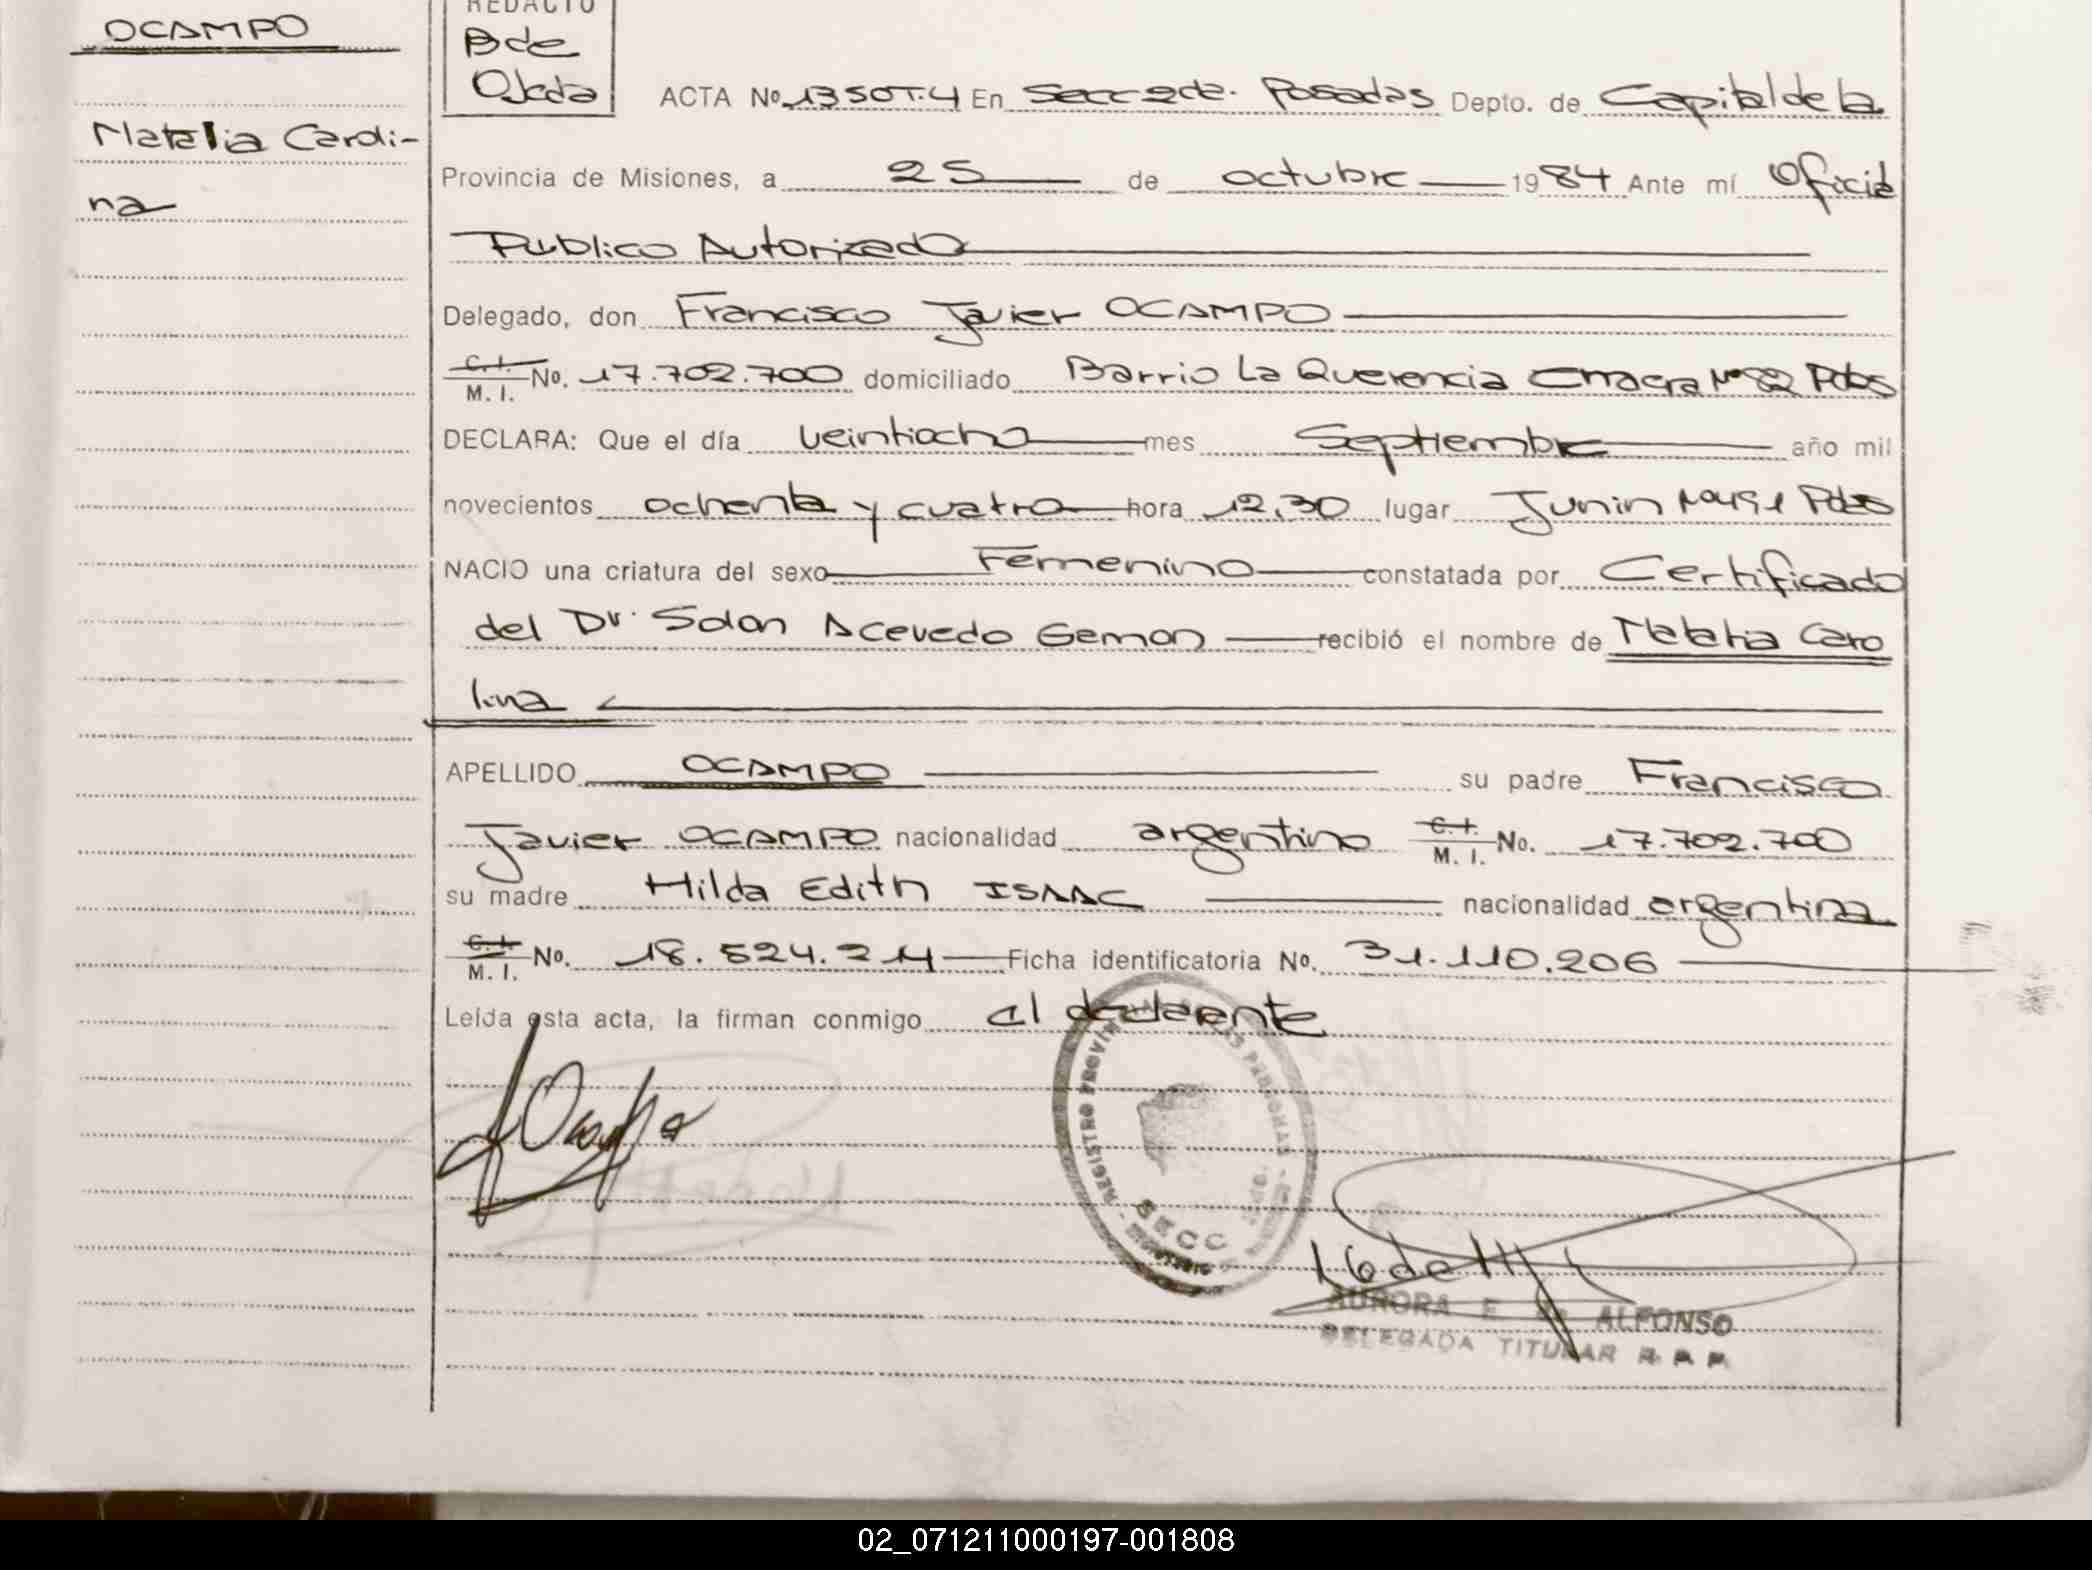 OCAMPO
Natalia Caroli-
na
REDACTO
B de
Ojeda
ACTA No. 1350T.4 En Secc 2da. Posadas Depto. de Capital de la
Provincia de Misiones, a 25 de octubre 1984 Ante mí Oficial
Publico Autorizado
Delegado, don Francisco Javier OCAMPO
C. I. M. I. No. 17.702.700 domiciliado Barrio La Querencia Chacra Nº 82 Pdas
DECLARA: Que el día veintiocho mes Septiembre año mil
novecientos ochenta y cuatro hora 12,30 lugar Junin Pdas
NACIO una criatura del sexo Femenino constatada por Certificado
del Dr. Solon Acevedo Gemon recibió el nombre de Natalia Caro
lina
APELLIDO OCAMPO su padre Francisco
Javier OCAMPO nacionalidad argentino C. I. M. I. No. 17.702.700
su madre Hilda Edith ISAAC nacionalidad argentina
C. I. M. I. No. 18.524.214 Ficha identificatoria No. 31.110.206
Leída esta acta, la firman conmigo el declarante
REGISTRO PROVINCIAL DE LAS PERSONAS
SECC
AURORA E de ALFONSO
DELEGADA TITULAR R. P. P.
02_071211000197-001808